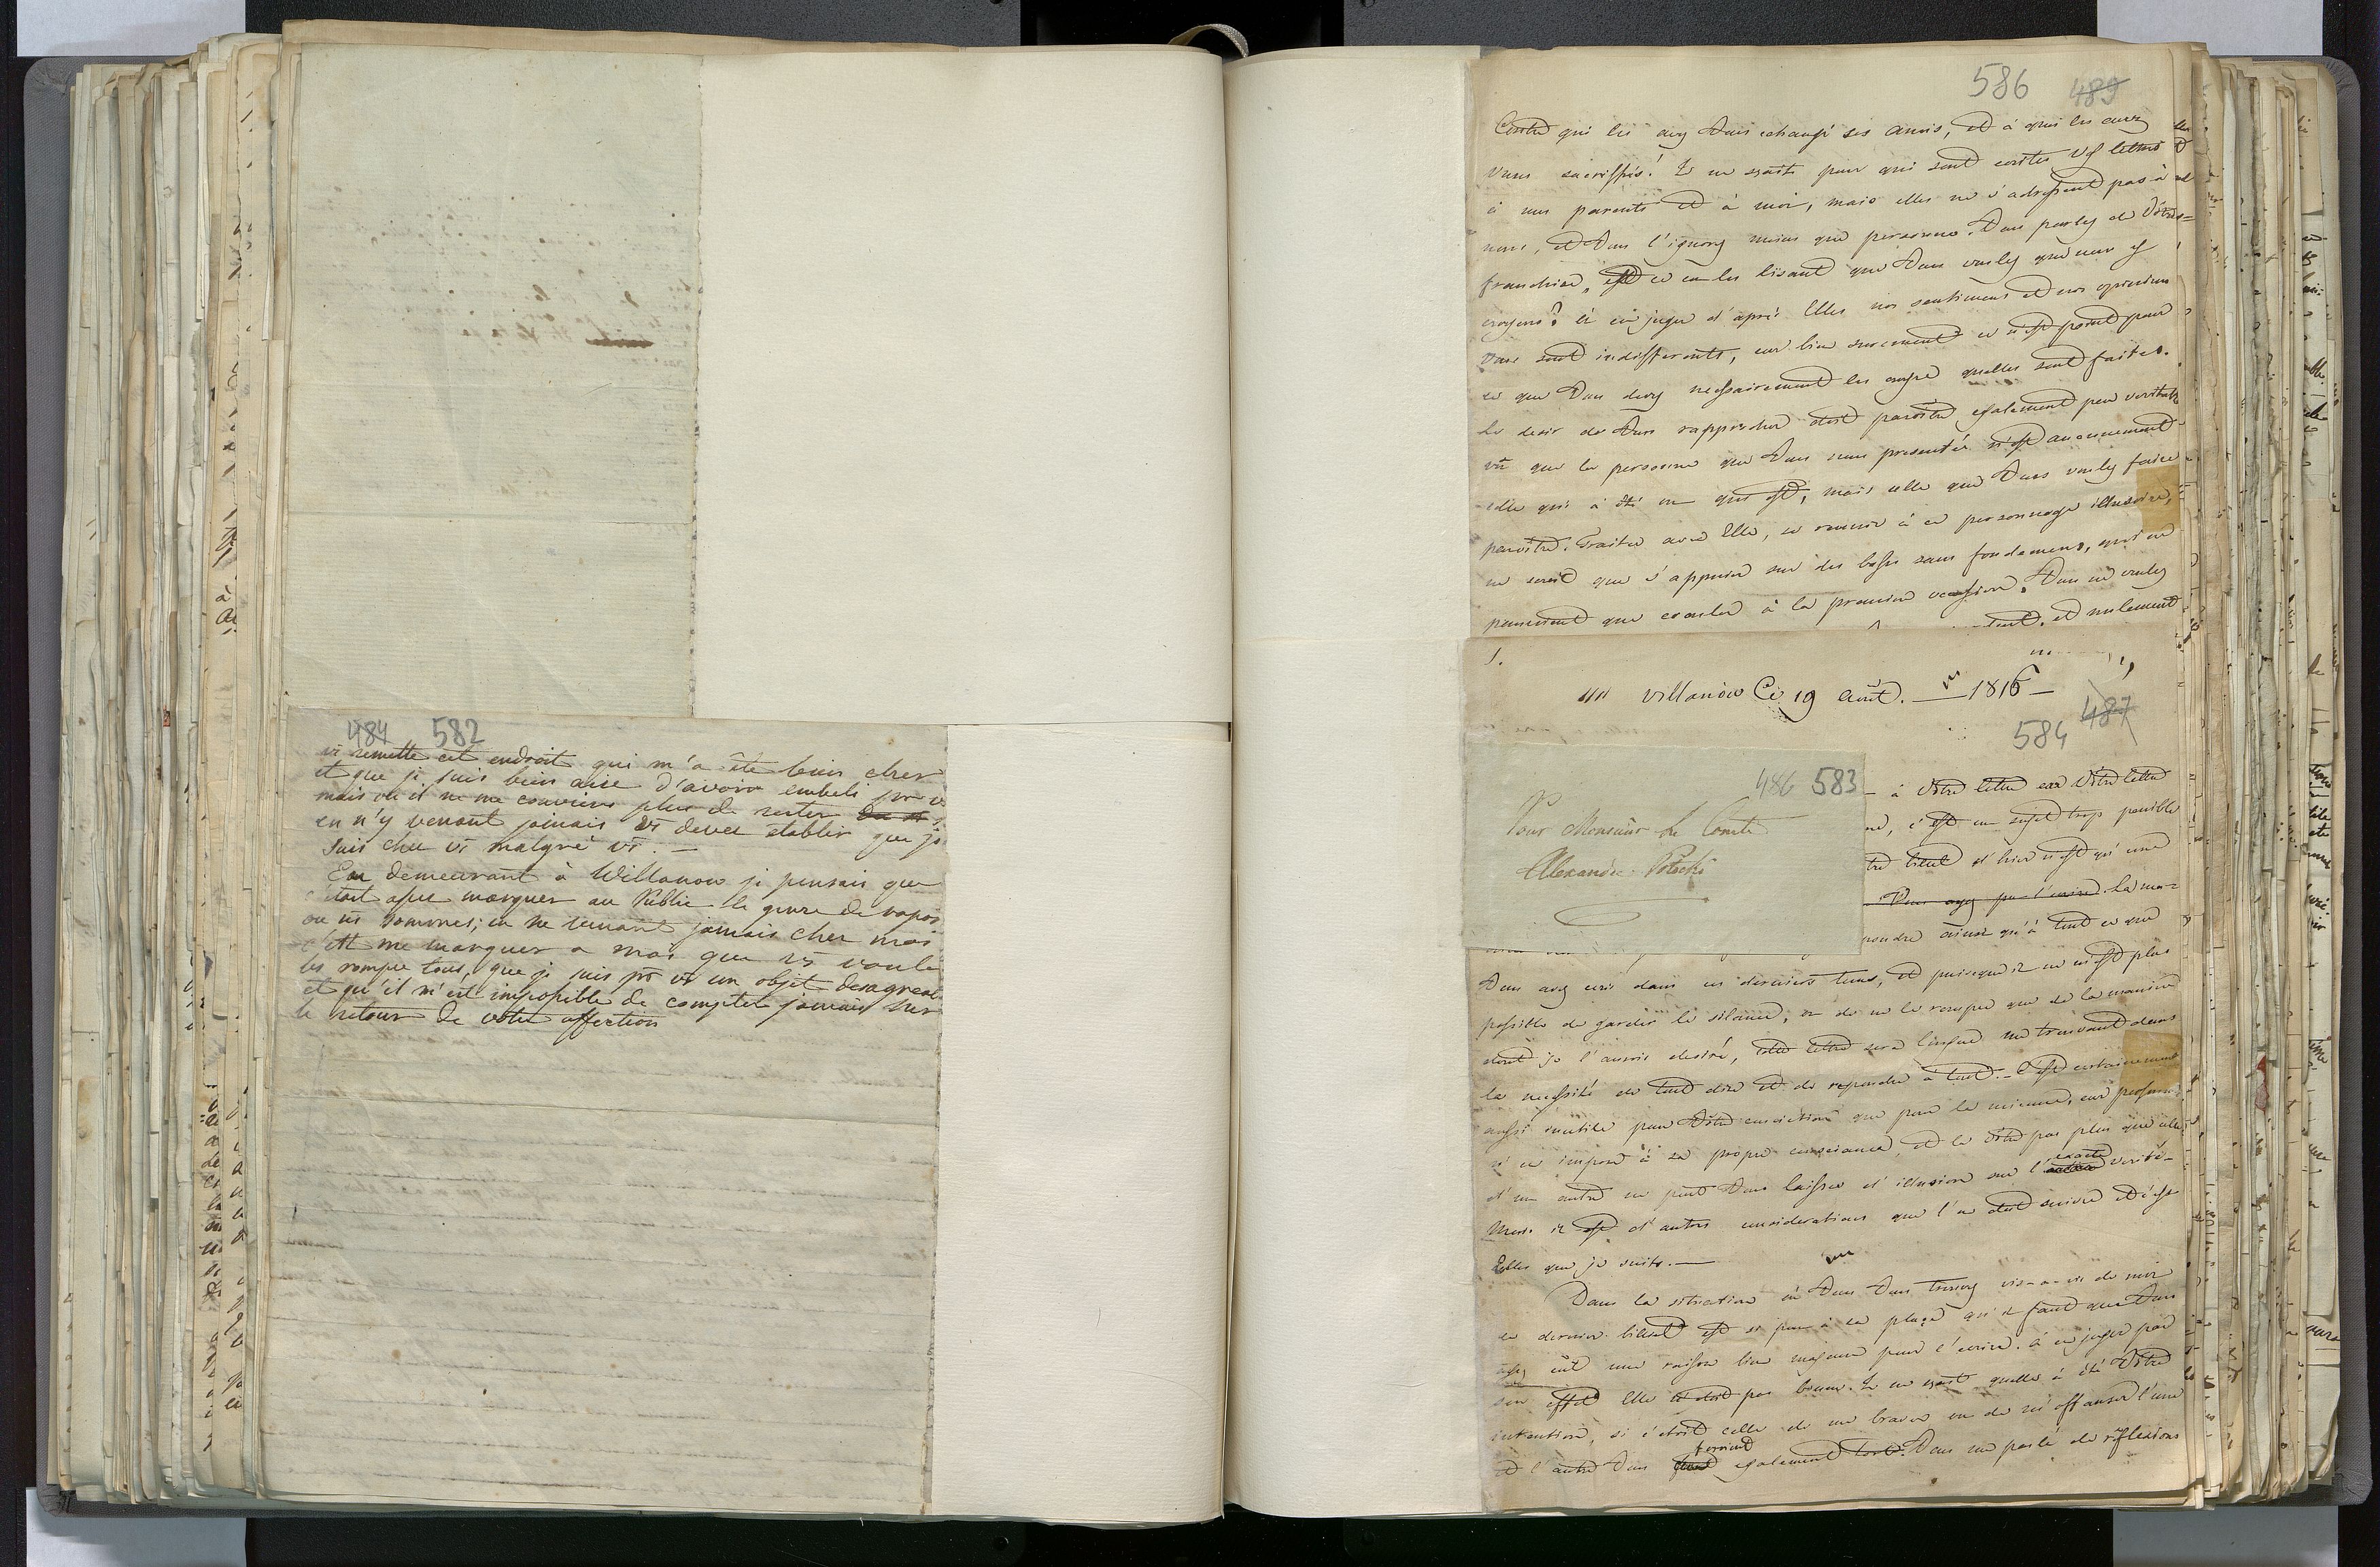 484 582
vs remette cet endroit qui m'a été bien cher
et que je suis bien aise d'avoir embeli pr vs
mais où il ne me convient plus de rester
en n'y venant jamais vs devez etablir que je
suis chez vs malgré vs. —
En demeurant à Willanow je pensais que
c'etoit assez marquer au Public le genre de rapor
ou ns sommes; en ne venant jamais chez moi
c'est me marquer a moi que vs voulez
les rompre tous, que je suis pr vs un objet desagreable
et qu'il m'est impossible de compter jamais sur
le retour de votre affection
586 489
Contre qui les avez Vous echangé ses amis, et à qui les avez
Vous sacrifiés! Je ne sçais pour qui sont ecrites Vos lettres
à mes parents et à moi, mais elles ne s'adressent pas à
nous, et Vous l'ignorez moins que personne. Vous parlez de Vôtre
franchise, est ce en les lisant que Vous voulez que nous y
croyons? à en juger d'après Elles nos sentimens et nos opinions
Vous sont indifferents, car bien surement ce n'est point pour
ce que Vous devez necessairement les croire qu'elles sont faites.
le desir de Vous rapprocher doit paroître egalement peu veritable
vû que la personne que Vous nous presentés n'est aucunement
celle qui à été ou qui est, mais celle que Vous voulez faire
paroître. Traiter avec Elle, se reunir à ce personnage illusoire,
ne seroit que s'appuier sur des bases sans fondemens, qui ne
pourroient que crouler à la premiere occasion. Vous ne voulez
et nulement
1.
Villanòw Ce 19 Août. — 1816 —
584 487
486 583
Pour Monsieur le Comte
Alexandre Potocki
à Vôtre lettre car Vôtre lettre
c'est un sujet trop penible
billet d'hier n'est qu'une
Vous avez pu l'ecrire. La ma-
pondre ainsi qu'à tout ce que
Vous avez ecris dans ces derniers tems, et puisqu'il ne m'est plus
possible de garder le silence, ou de ne le rompre que de la maniere
dont je l'aurois desiré, cette lettre sera longue me trouvant dans
la necessité de tout dire et de repondre à tout. — C'est certainement
aussi inutile pour Vôtre conviction que pour la mienne, car personne
n'en impose à sa propre conscience, et la Vôtre pas plus que celle
d'un autre ne peut Vous laisser d'illusion sur l'exacte verité —
Mais il est d'autres considerations que l'on doit suivre et c'est
Elles que je suits. —
Dans la situation où Vous Vous trouvez vis-a-vis de moi
ce dernier billet est si peu à sa place qu'il faut que Vous
ayez eût une raison bien majeure pour l'ecrire. à en juger par
son effet Elle n'etoit pas bonne. Je ne sçais quelle à été Vôtre
intention, si c'etoit celle de me braver ou de m'offenser l'une
et l'autre Vous feroient egalement tort. Vous me parlé de réflexions